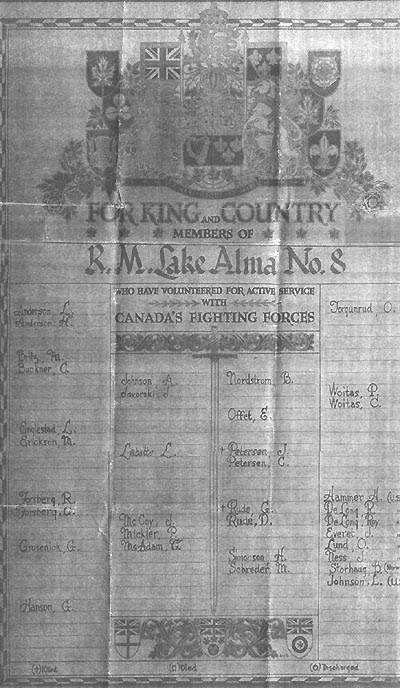 FOR KING AND COUNTRY
MEMBERS OF
R. M. Lake Alma No. 8
WHO HAVE VOLUNTEERED FOR ACTIVE SERVICE
WITH
CANADA'S FIGHTING FORCES
Anderson, L.
Anderson, H.
Britz, M.
Buckner, C.
Englestad, L.
Erickson, M.
Forsberg, R.
Forsberg, C.
Grosenick, G.
Hanson, G.
Johnson, A.
Javorski, J.
Labatte L.
McCoy, J.
Mickler, P.
McAdam, G.
Nordstrom, B.
Offet, E.
+ Petersen, J.
Petersen, C.
+ Rude, G.
Rude, D.
Simonson H.
Schreder, M.
Torgunrud, O.
Woitas, P.
Woitas, C.
Hammer A. (U.S
DeLong, R.
DeLong, Roy
Everet, J.
Lund, O.
Ness J.
Storhaug, B.
Johnson, L. (U.
(+) Killed
(O) Died
(O) Discharged